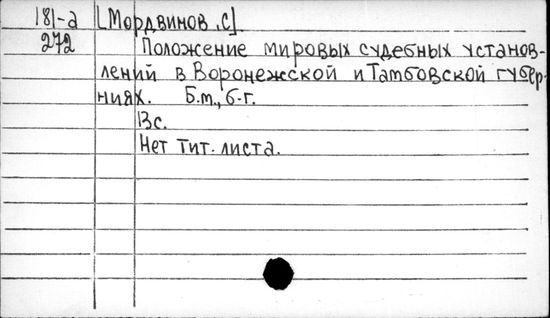 181-а [Мордвинов, С].
272 Положение мировых судебных установ-
лений в Воронежской и Тамбовской губер-
ниях. Б.м., б-г.
13с.
Нет тит. листа.